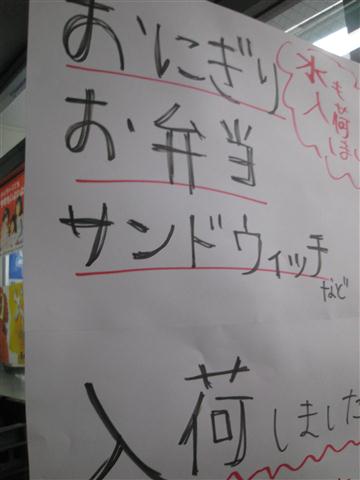 おにぎり
お弁当
サンドウィッチ
など
入荷しました
水も
入荷